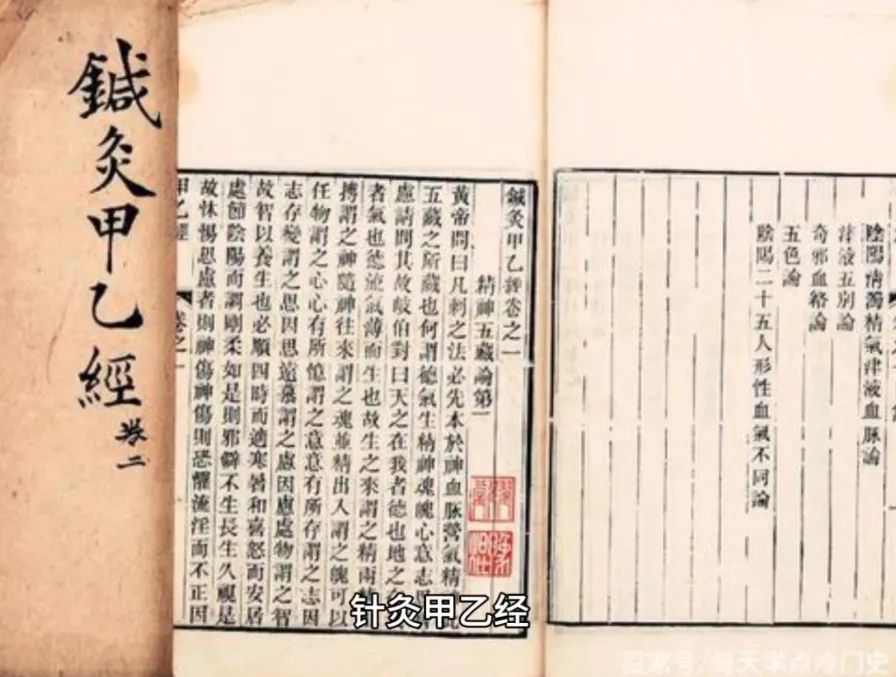 鍼灸甲乙經
卷二
陰陽清濁精氣津液血脈論
津液五別論
奇邪血絡論
五色論
陰陽二十五人形性血氣不同論
鍼灸甲乙經卷之一
精神五藏論第一
黃帝問曰凡刺之法必先本於神血脈營氣精
五藏之所藏也何謂德氣生精神魂魄心意志
慮請問其故歧伯對曰天之在我者德也地之
者氣也德流氣薄而生也故生之來謂之精兩
搏謂之神隨神往來謂之魂並精出入謂之魄可以
任物謂之心心有所憶謂之意意有所存謂之志因
志存變謂之思因思遠慕謂之慮因慮處物謂之智
故智以養生也必順四時而適寒暑和喜怒而安居
處節陰陽而調剛柔如是則邪僻不生長生久視是
故怵惕思慮者則神傷神傷則恐懼流淫而不正因
甲乙經
卷之一
针灸甲乙经
百家号/每天学点冷门史